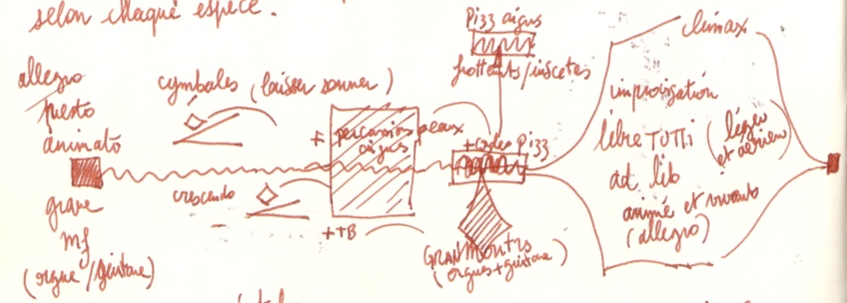 selon chaque espèce.
allegro
presto
animato
grave
mf
(orgue/guitare)
cymbales (laisser sonner)
crescendo
percussions peaux
aigues
++TB
Pizz aigus
frottants/insectes
+cordes Pizz
(orgues+guitare)
climax
improvisation
libre TUTTI (léger
et aérien)
ad lib
animé et vivant
(allegro)